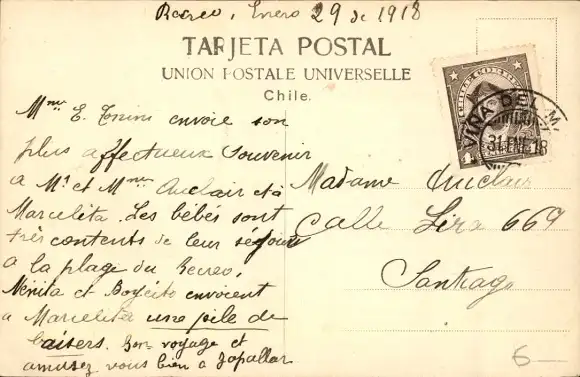 Recreo, Enero 29 de 1918
TARJETA POSTAL
UNION POSTALE UNIVERSELLE
Chile.
Mme E. Tonini envoie son
plus affectueux souvenir
a Mr et Mme Auclair et à
Marcelita. Les bébés sont
très contents de leur séjour
a la plage du Recreo,
Nenita et Boycito envoient
a Marcelita une pile de
baisers. Bon voyage et
amusez vous bien a Zapallar
VIÑA DEL M
31 ENE 18
Madame Auclair
Calle Lira 669
Santiago
6